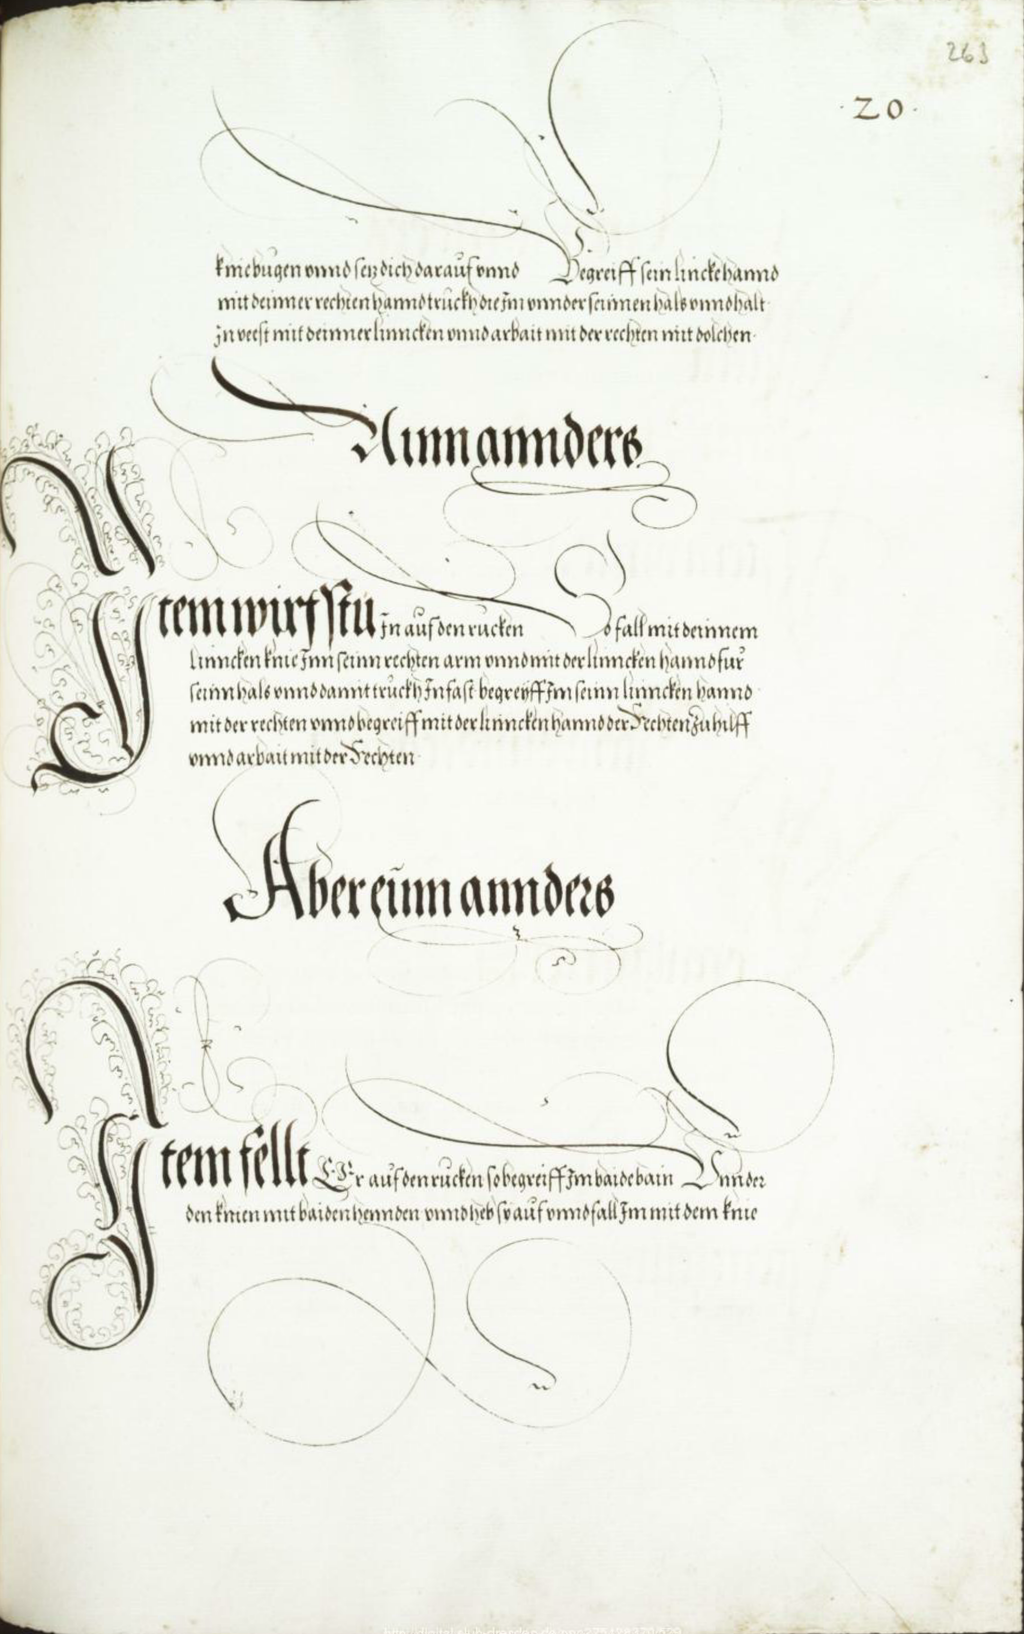 263
·20·
kniebugen vnnd setz dich darauf vnnd Begreiff sein lincke hannd
mit deinner rechten hannd truckh die Im vnnder seinnen hals vnnd halt
In veest mit deinner linncken vnnd arbait mit der rechten mit dolchen·
Ainn annders
Item wirfstu In auf den rucken So fall mit deinnem
linncken knie Inn seinn rechten arm vnnd mit der linncken hannd fur
seinn hals vnnd damit truckh In fast begreyff Im seinn linncken hannd
mit der rechten vnnd begreiff mit der linncken hannd der Rechten zu hilff
vnnd arbait mit der Rechten·
Aber eynn annders
Item fellt Er auf den rucken so begreiff Im baide bain Vnnder
den knien mit baiden hennden vnnd heb sy auf vnnd fall Im mit dem knie